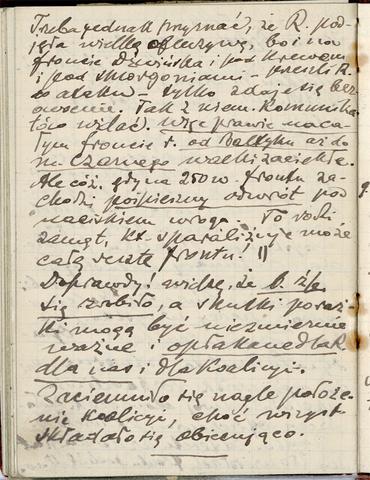 Trzeba jednak przyznać, że R. pod-
jęła wielką ofenzywę, bo i na
froncie Dźwińska i pod Krewem
i pod Smorgoniami – przeszli R.
do ataku – tylko zdaje się bez-
owocnie. Tak z niem. Komunika-
tów widać. Więc prawie na ca-
łym froncie r. od Bałtyku aż do
m. czarnego walki zacięte.
Ale cóż, gdy na 250 w. frontu za-
chodzi pośpieszny odwrót pod
naciskiem wroga. To rodzi
zamęt, kt. sparaliżuje może
całą resztę frontu!
Doprawdy! widzę, że b. źle
się zrobiło, a skutki poraż-
ki mogą być niezmiernie
ważne i opłakane dla R.
dla nas i dla Koalicji.
Zaciemniło się nagle położe-
nie Koalicji, choć wszyst-
ko składało się obiecująco.